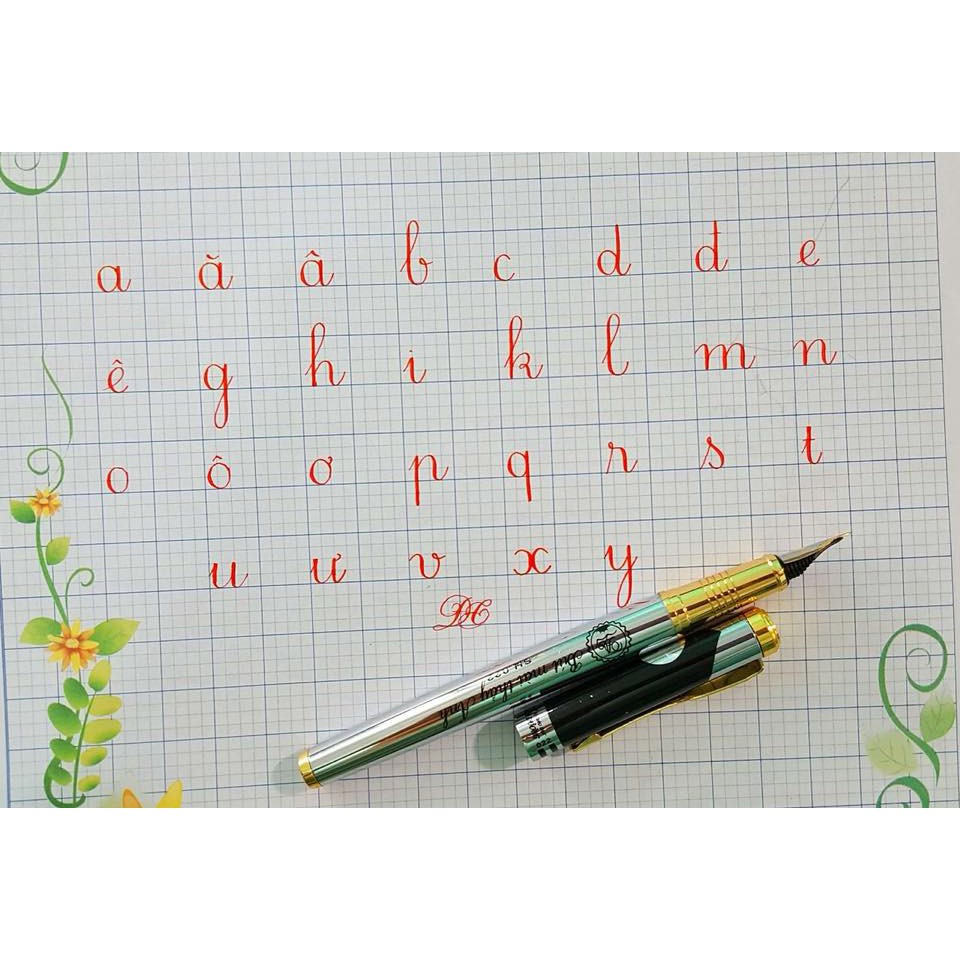 a ă â b c d đ e
ê g h i k l m n
o ô ơ p q r s t
u ư v x y
Bút mài thầy Ánh
SH 022
022